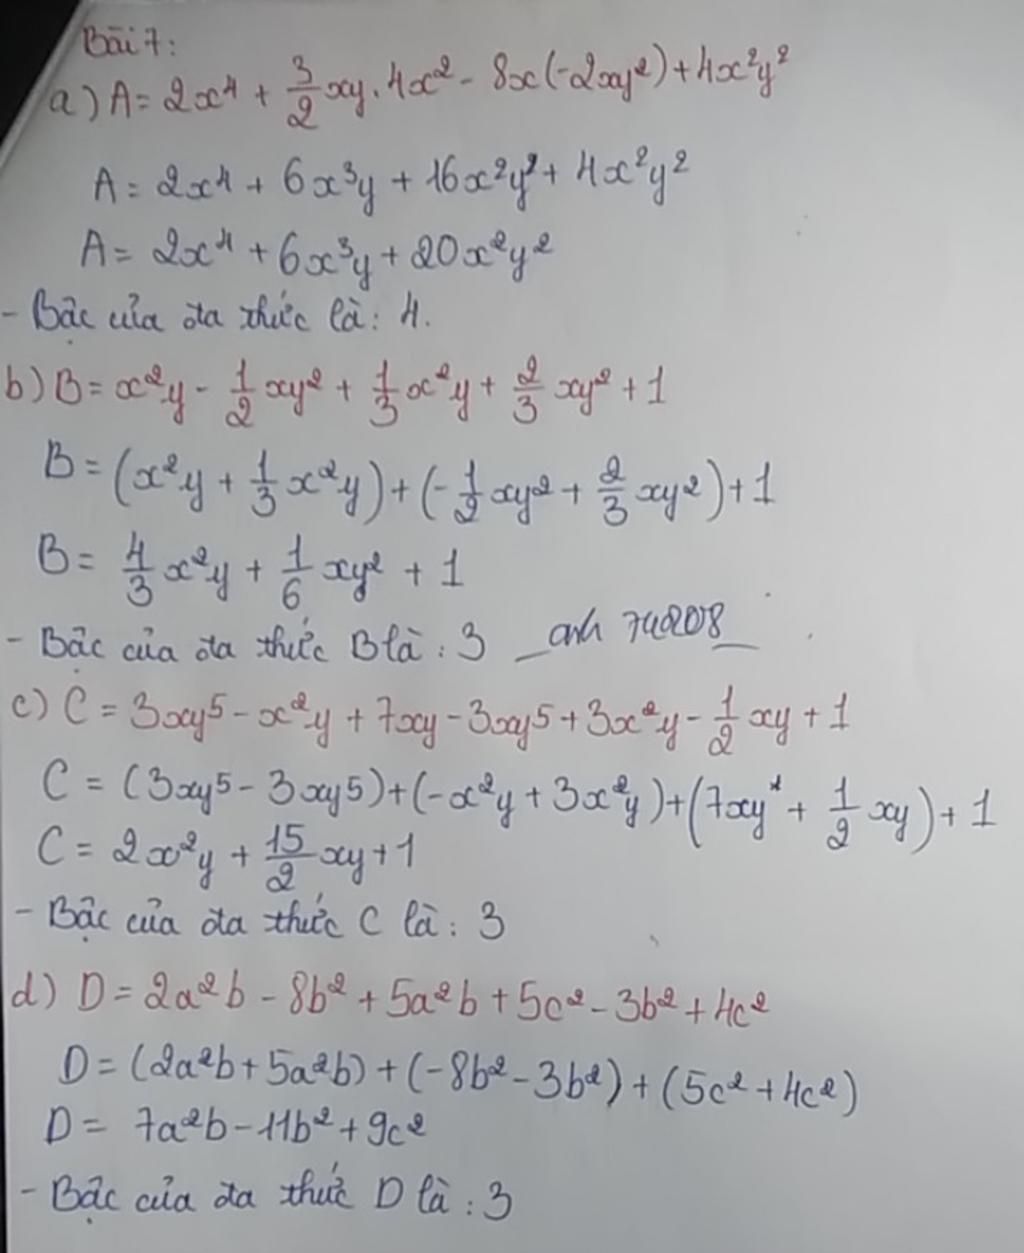 Bài 7:
a) A = 2x⁴ + 3/2 xy . 4x² - 8x(-2xy²) + 4x²y²
A = 2x⁴ + 6x³y + 16x²y² + 4x²y²
A = 2x⁴ + 6x³y + 20x²y²
- Bậc của đa thức là: 4.
b) B = x²y - 1/2 xy² + 1/3 x²y + 2/3 xy² + 1
B = (x²y + 1/3 x²y) + (-1/2 xy² + 2/3 xy²) + 1
B = 4/3 x²y + 1/6 xy² + 1
- Bậc của đa thức B là: 3 _anh 74208_
c) C = 3xy⁵ - x²y + 7xy - 3xy⁵ + 3x²y - 1/2 xy + 1
C = (3xy⁵ - 3xy⁵) + (-x²y + 3x²y) + (7xy + 1/2 xy) + 1
C = 2x²y + 15/2 xy + 1
- Bậc của đa thức C là: 3
d) D = 2a²b - 8b² + 5a²b + 5c² - 3b² + 4c²
D = (2a²b + 5a²b) + (-8b² - 3b²) + (5c² + 4c²)
D = 7a²b - 11b² + 9c²
- Bậc của đa thức D là: 3